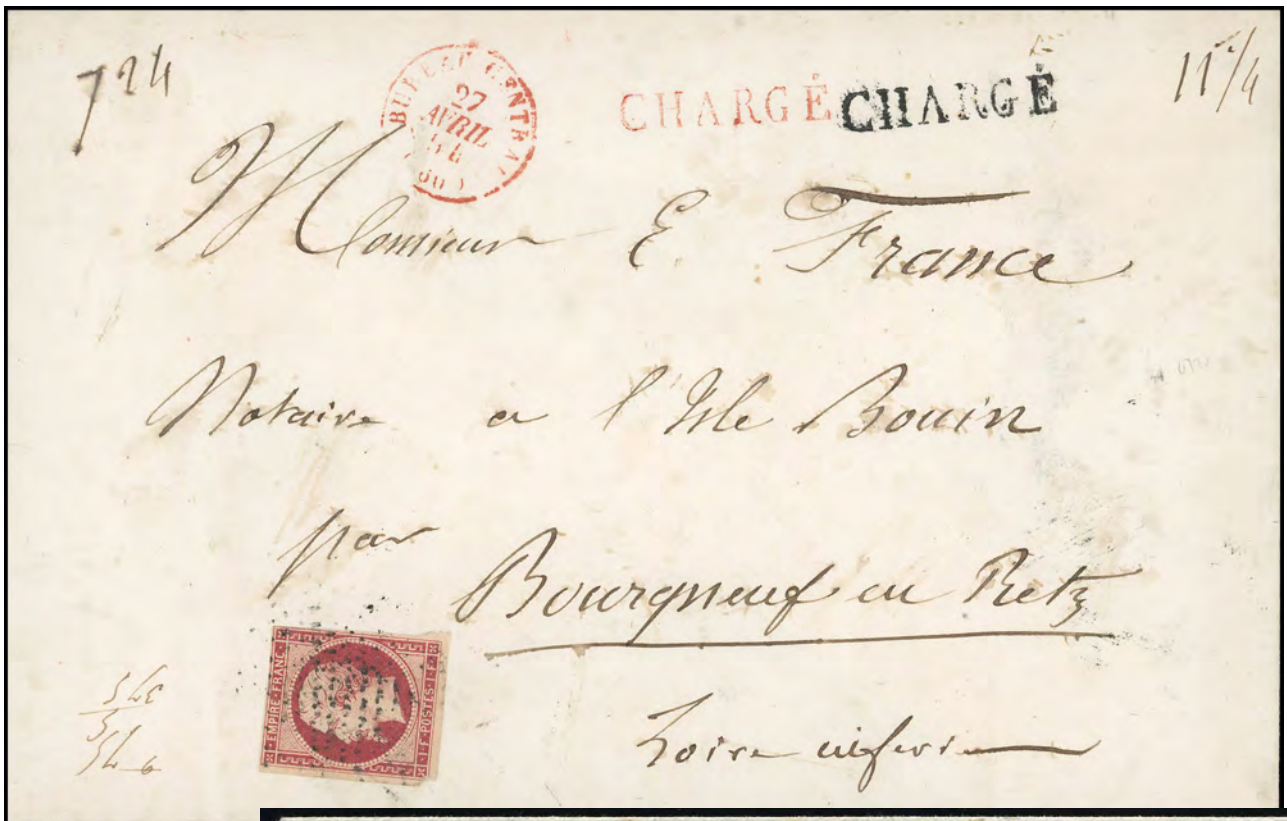 724
BUREAU CENTRAL
27
AVRIL
54
(60)
CHARGÉ CHARGÉ
11/4
Monsieur E. France
Notaire a l'Isle Bouin
par
Bourgneuf en Retz
Loire inferre
EMPIRE · FRANC ·
1 · F · POSTES · 1 · F ·